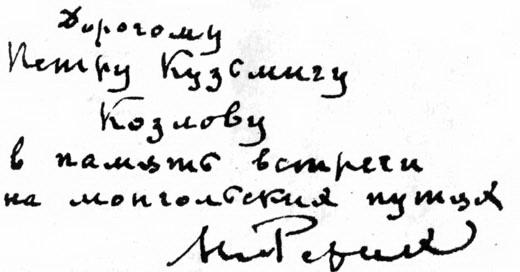 Дорогому
Петру Кузьмичу
Козлову
в память встречи
на монгольских путях
Н. Рерих